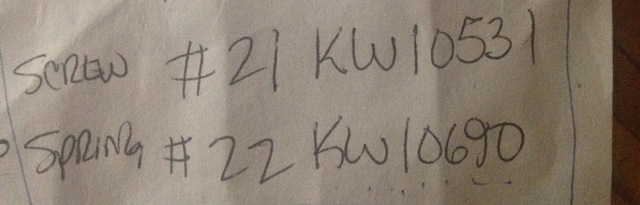 SCREW #21 KW10531
SPRING #22 KW10690